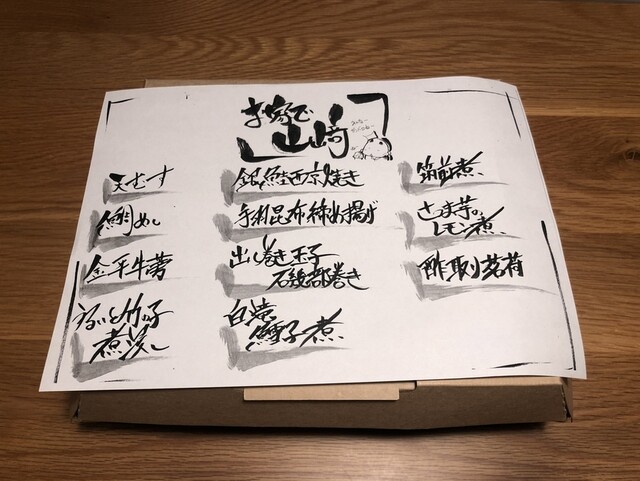 お家で
山﨑
天むす
鯛めし
金平牛蒡
うるいと竹の子
煮浸し
銀鮭西京焼き
手羽昆布締め揚げ
出し巻き玉子
磯部巻き
白滝
鱈子煮
筑前煮
さつま芋の
レモン煮
酢取り茗荷